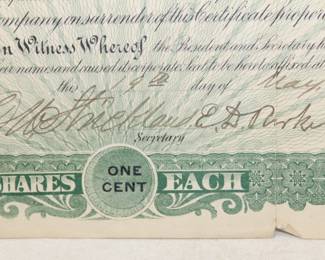 Company on surrender of this Certificate proper
n Witness Whereof the President and Secretary h
eir names and caused its corporate seal to be hereto affixed at
this 9th day of May
Strickland E. D.
Secretary
SHARES ONE CENT EACH